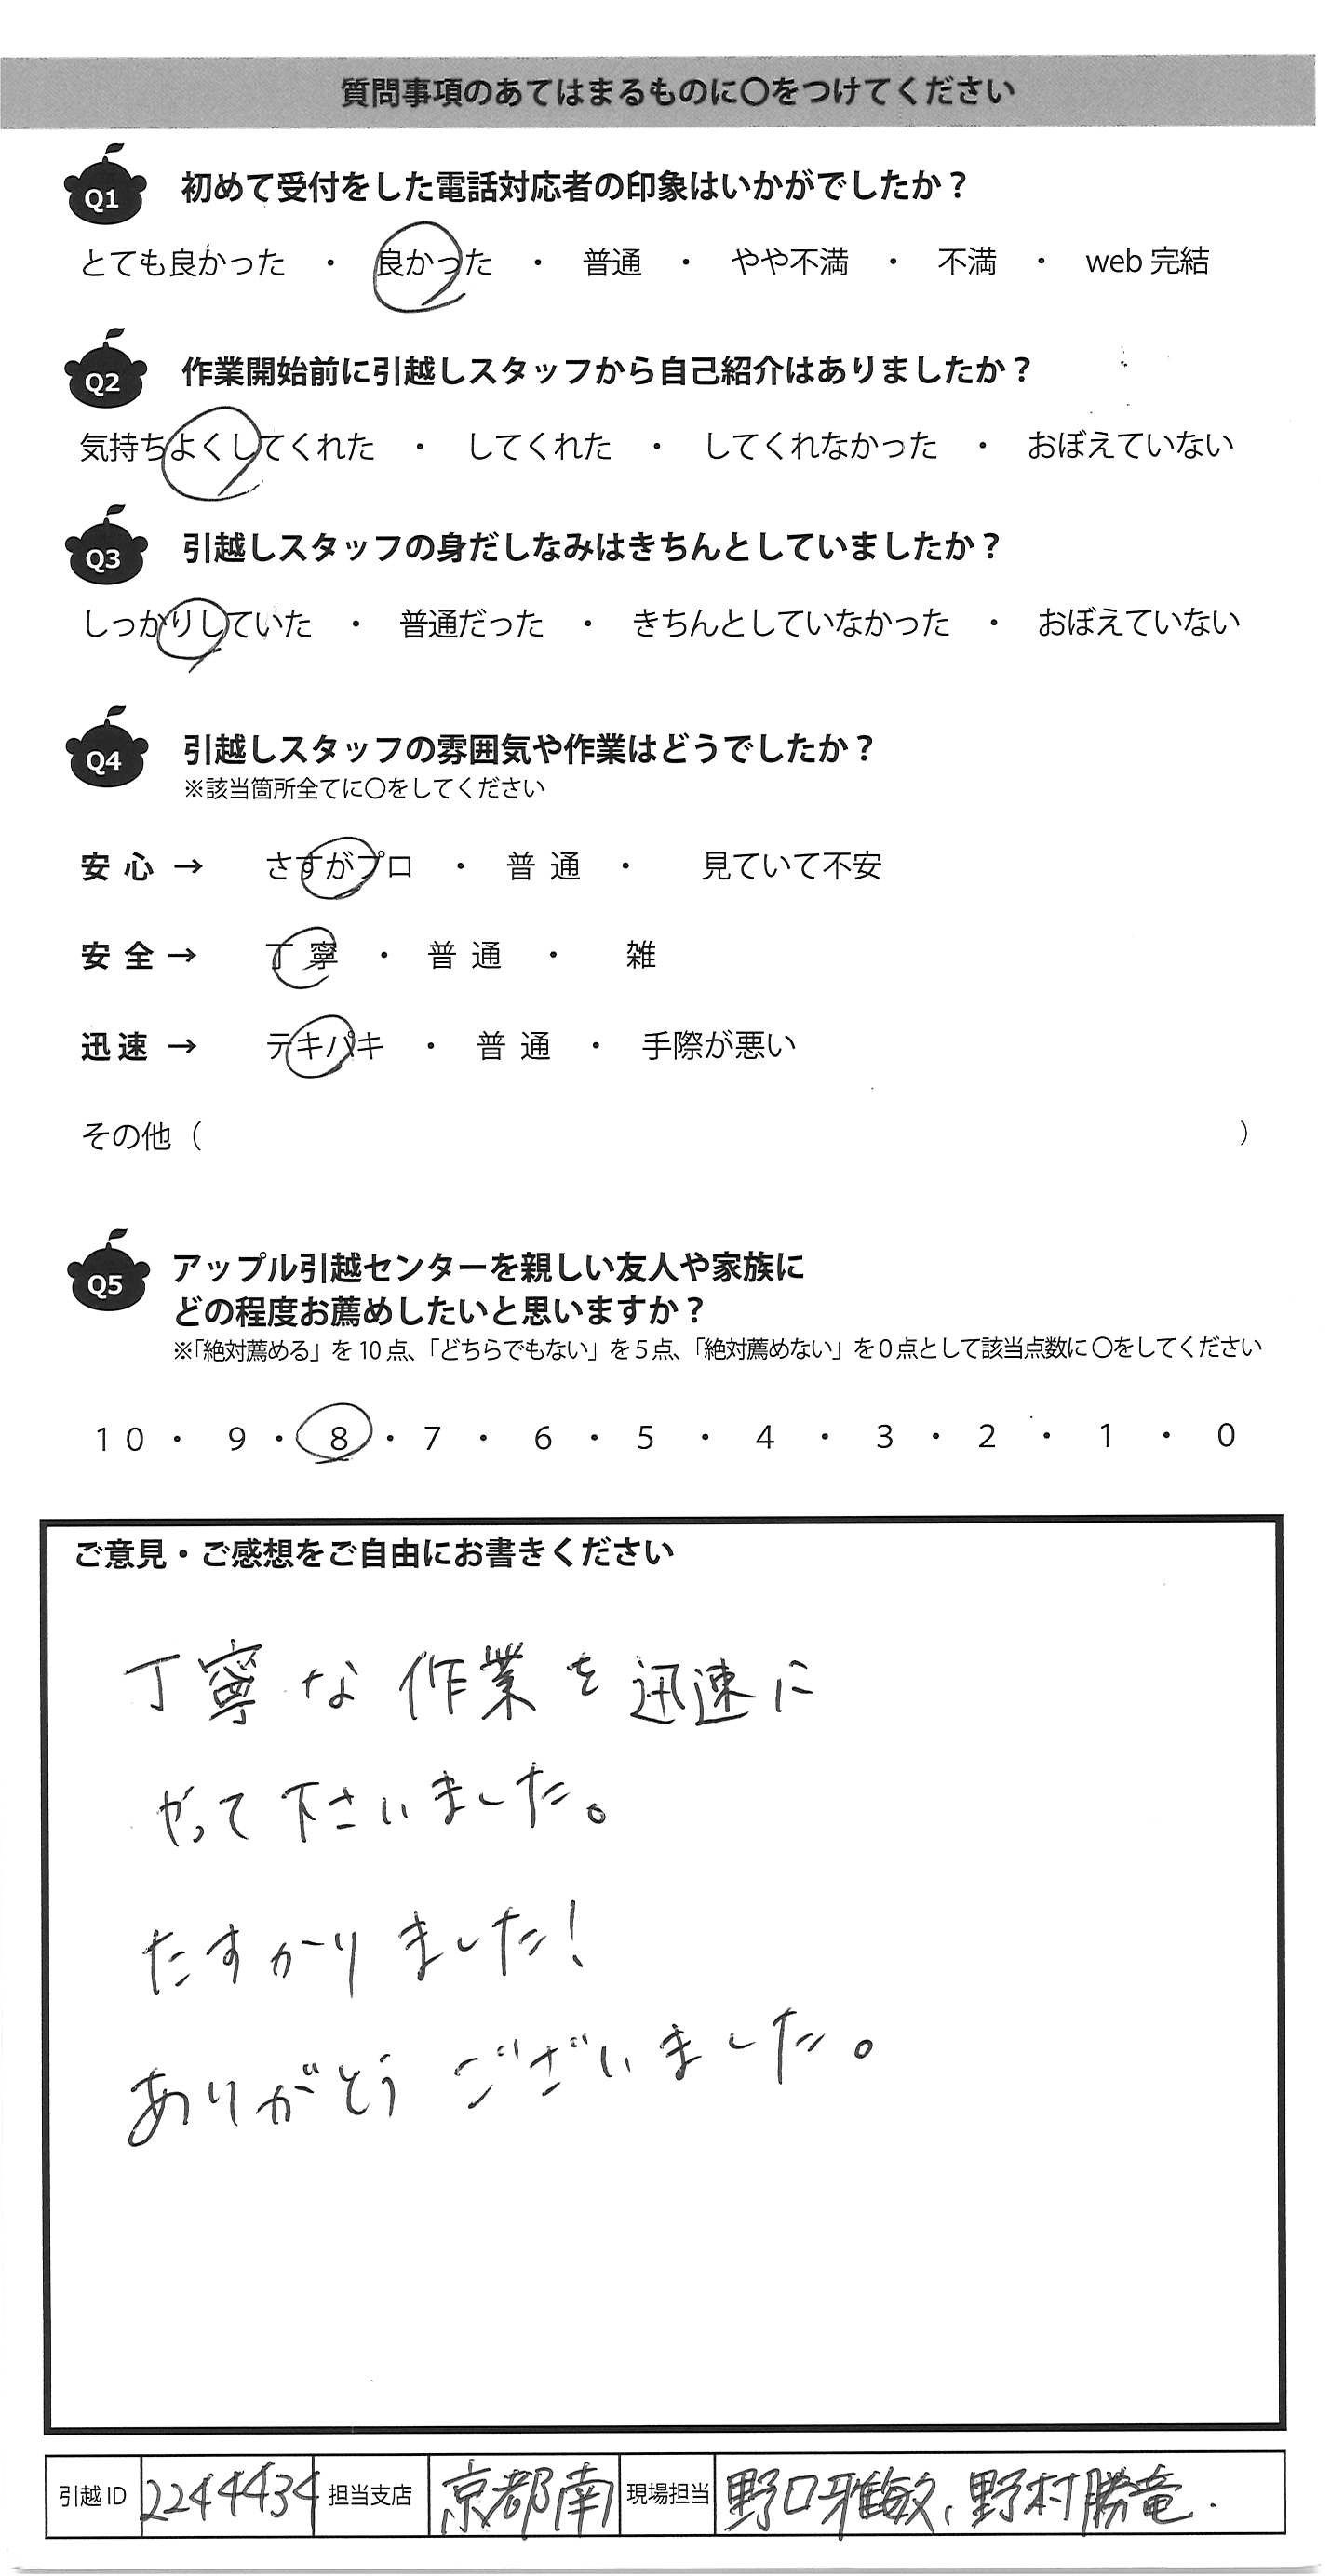 質問事項のあてはまるものに〇をつけてください
Q1 初めて受付をした電話対応者の印象はいかがでしたか？
とても良かった ・ 良かった ・ 普通 ・ やや不満 ・ 不満 ・ web 完結
Q2 作業開始前に引越しスタッフから自己紹介はありましたか？
気持ちよくしてくれた ・ してくれた ・ してくれなかった ・ おぼえていない
Q3 引越しスタッフの身だしなみはきちんとしていましたか？
しっかりしていた ・ 普通だった ・ きちんとしていなかった ・ おぼえていない
Q4 引越しスタッフの雰囲気や作業はどうでしたか？
※該当箇所全てに〇をしてください
安心 → さすがプロ ・ 普通 ・ 見ていて不安
安全 → 丁寧 ・ 普通 ・ 雑
迅速 → テキパキ ・ 普通 ・ 手際が悪い
その他（ ）
Q5 アップル引越センターを親しい友人や家族に
どの程度お薦めしたいと思いますか？
※「絶対薦める」を10点、「どちらでもない」を5点、「絶対薦めない」を0点として該当点数に〇をしてください
10 ・ 9 ・ 8 ・ 7 ・ 6 ・ 5 ・ 4 ・ 3 ・ 2 ・ 1 ・ 0
ご意見・ご感想をご自由にお書きください
丁寧な作業を迅速に
やって下さいました。
たすかりました！
ありがとうございました。
引越ID 2244434 担当支店 京都南 現場担当 野口雅敏、野村勝竜.